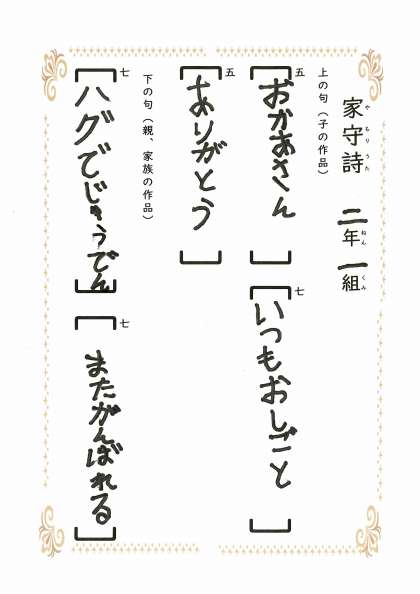 家守詩 二年 一組
やもりうた ねん くみ
上の句(子の作品)
五
おかあさん
七
いつもおしごと
五
ありがとう
下の句(親、家族の作品)
七
ハグでじゅうでん
七
またがんばれる